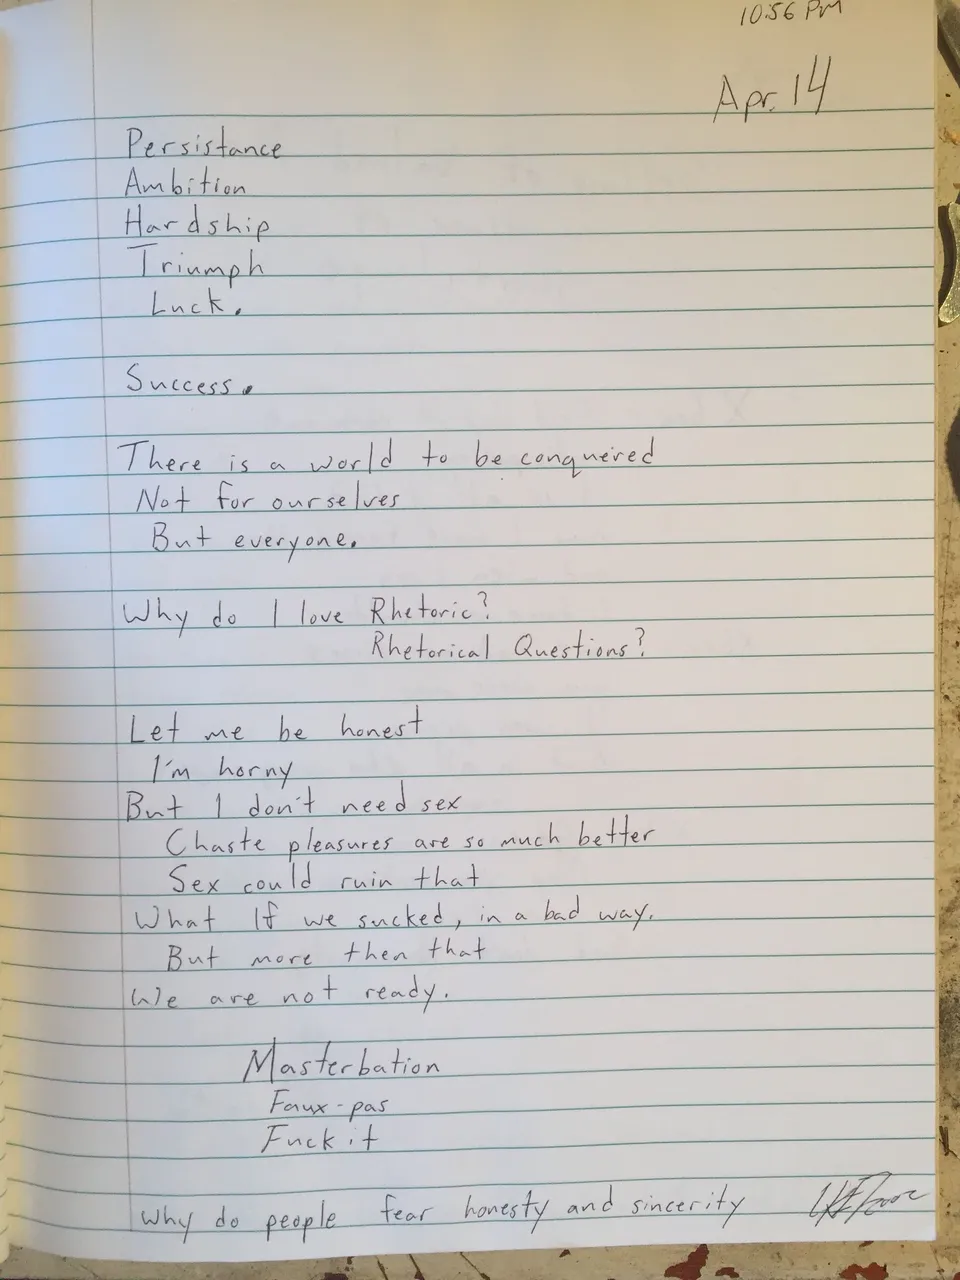 10:56 PM
Apr. 14
Persistance
Ambition
Hardship
Triumph
Luck.
Success.
There is a world to be conquered
Not for ourselves
But everyone.
Why do I love Rhetoric?
Rhetorical Questions?
Let me be honest
I'm horny
But I don't need sex
Chaste pleasures are so much better
Sex could ruin that
What If we sucked, in a bad way.
But more then that
We are not ready.
Masterbation
Faux-pas
Fuck it
Why do people fear honesty and sincerity